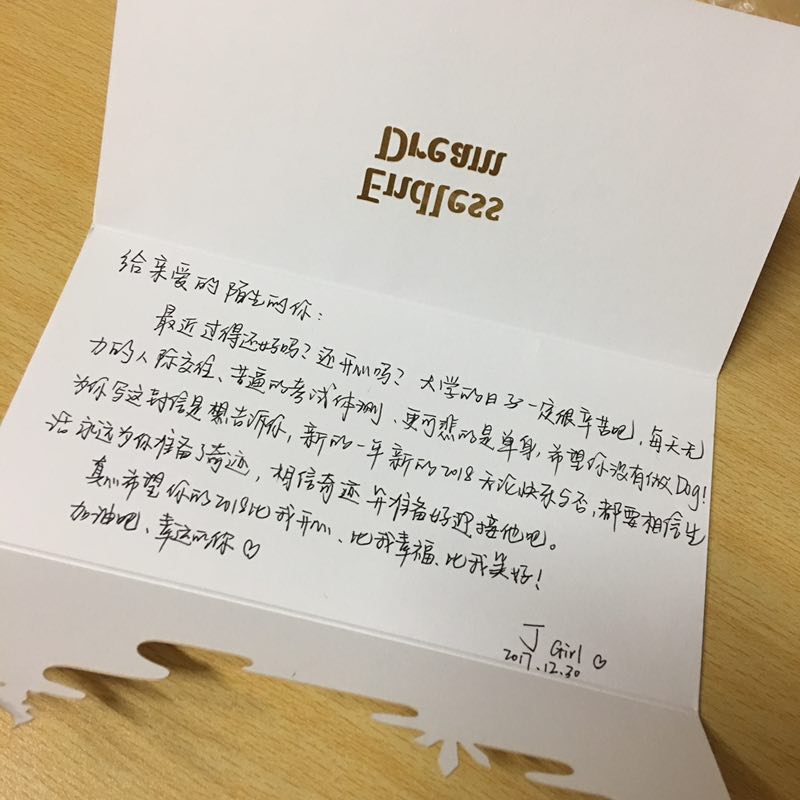 Endless
Dream
给亲爱的陌生的你：
最近过得还好吗？还开心吗？大学的日子一定很辛苦吧，每天无
力的人际交往、苦逼的考试体测、更可悲的是单身，希望你没有做Dog！
为你写这封信是想告诉你，新的一年新的2018无论快乐与否，都要相信生
活永远为你准备了奇迹，相信奇迹并准备好迎接他吧。
真心希望你的2018比我开心、比我幸福、比我美好！
加油吧、幸运的你♡
J Girl ♡
2017.12.30